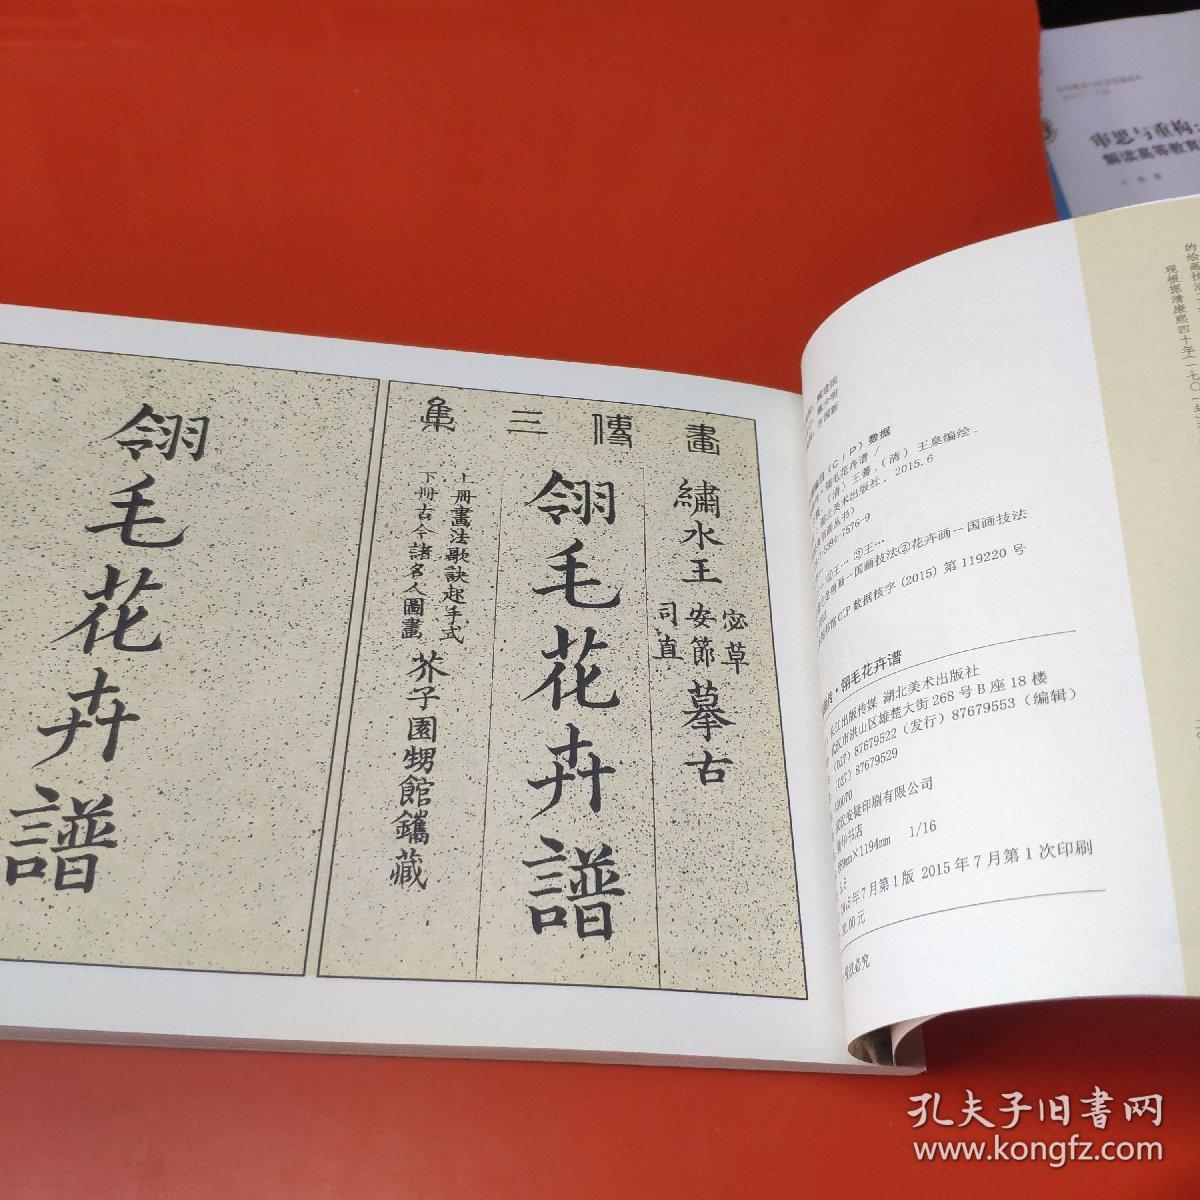 畫傳三集
繡水王
宓草
安節
司直
摹古
翎毛花卉譜
上冊畫法歌訣起手式
下冊古今諸名人圖畫
芥子園甥館鐫藏
翎毛花卉譜
(CIP) 数据
翎毛花卉谱 /
(清) 王蓍, (清) 王臬编绘.
美术出版社, 2015.6
7576-9
②王… ③王…
国画技法②花卉画—国画技法
CIP 数据核字 (2015) 第 119220 号
翎毛花卉谱
长江出版传媒 湖北美术出版社
武汉市洪山区雄楚大街 268 号 B 座 18 楼
(027) 87679522 (发行) 87679553 (编辑)
(027) 87679529
430070
印刷有限公司
书店
889mm×1194mm 1/16
2015年7月第1版 2015年7月第1次印刷
.00元
必究
现根据清康熙四十年(一七〇
的绘画技法
审思与重构
解读高等教育
孔夫子旧书网
www.kongfz.com